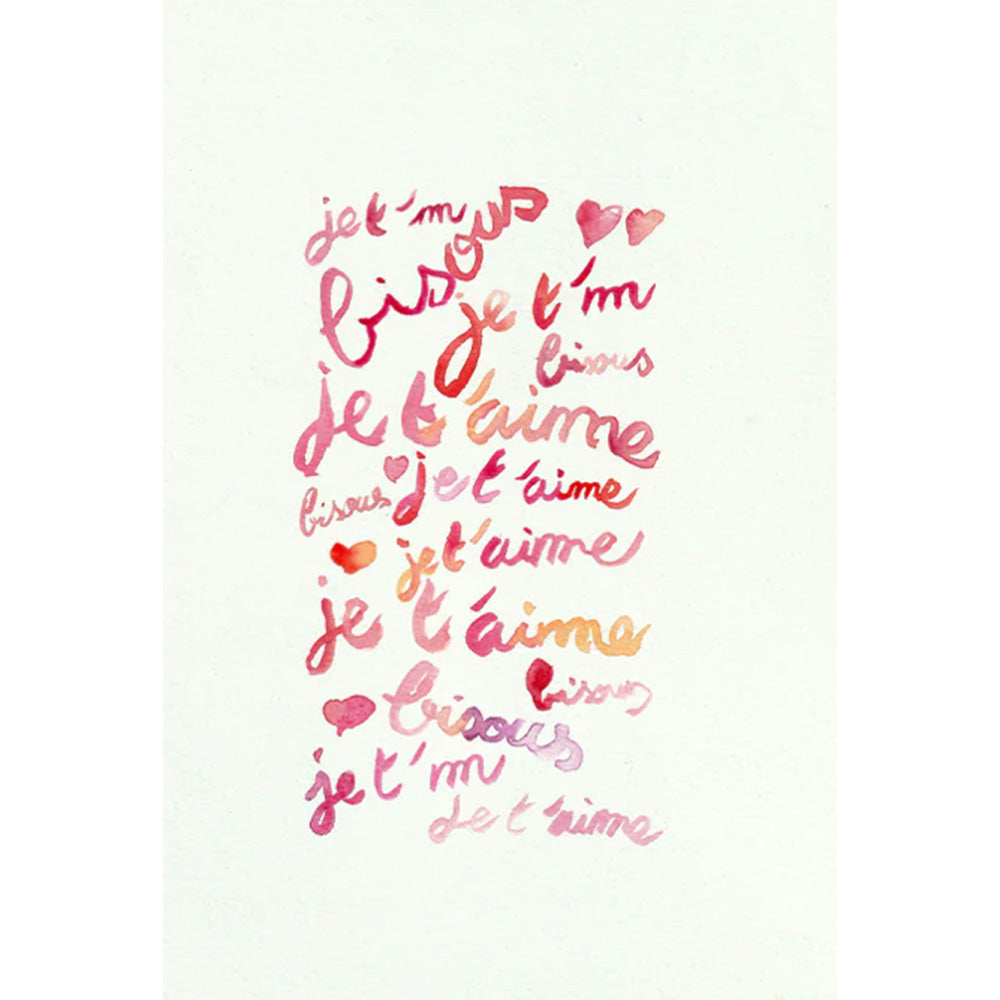 je t'm
bisous
je t'm
bisous
je t'aime
je t'aime
bisous
je t'aime
je t'aime
bisous
bisous
je t'm
Je t'aime